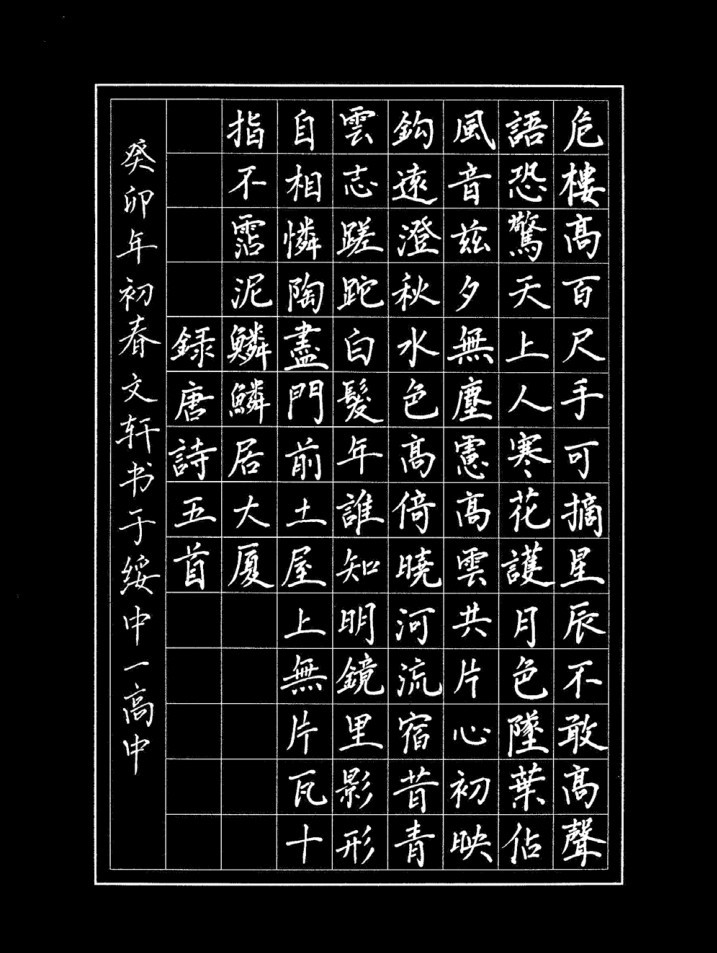 危樓高百尺手可摘星辰不敢高聲
語恐驚天上人寒花護月色墜葉佔
風音茲夕無塵慮高雲共片心初映
鈎遠澄秋水色高倚曉河流宿昔青
雲志蹉跎白髮年誰知明鏡里影形
自相憐陶盡門前土屋上無片瓦十
指不霑泥鱗鱗居大厦
録唐詩五首
癸卯年初春文轩书于绥中一高中